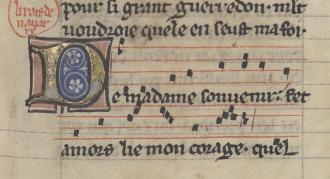 li rois de
nauar
re
pour si grant guerredon. mlt
uoudroie quele en seust ma foi.
De ma dame souuenir. fet
amors lie mon corage. quel